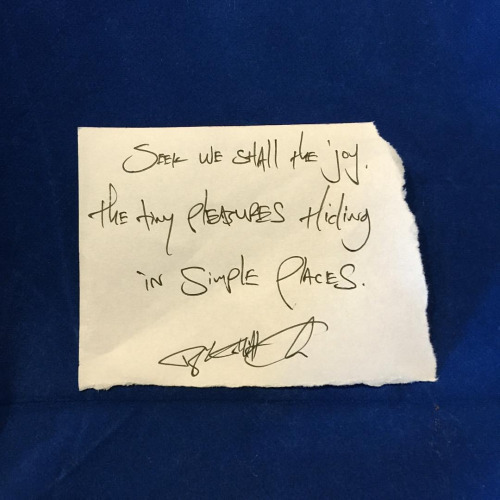 Seek we shall the joy.
the tiny pleasures Hiding
in simple places.